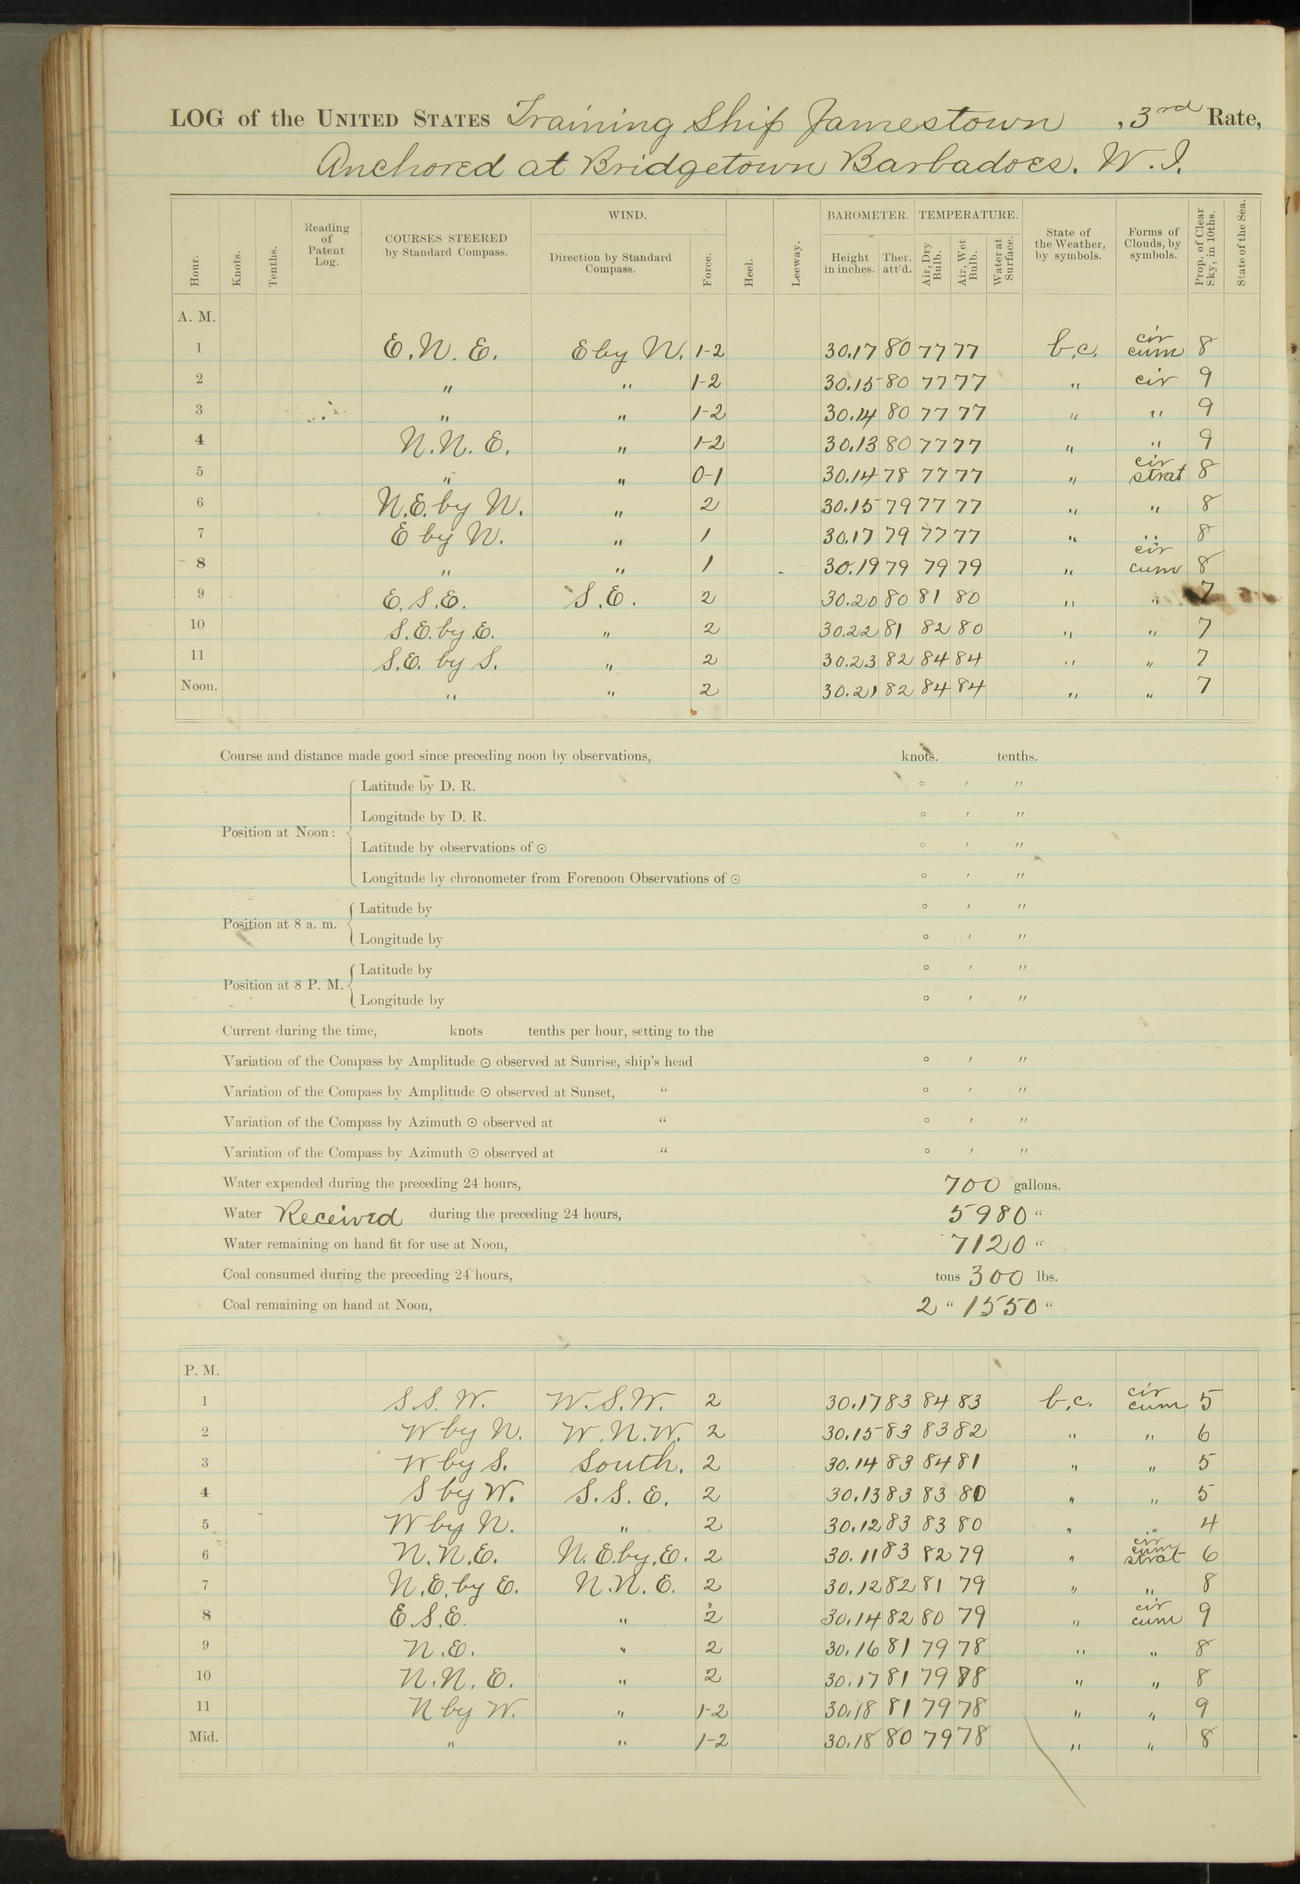 LOG of the UNITED STATES Training Ship Jamestown , 3rd Rate,
Anchored at Bridgetown Barbadoes. W. I.
Hour. Knots. Tenths. Reading of Patent Log. COURSES STEERED by Standard Compass. WIND. Direction by Standard Compass. Force. Heel. Leeway. BAROMETER. Height in inches. Ther. att'd. TEMPERATURE. Air, Dry Bulb. Air, Wet Bulb. Water at Surface. State of the Weather, by symbols. Forms of Clouds, by symbols. Prop. of Clear Sky, in 10ths. State of the Sea.
A. M.
1 E. N. E. E by N. 1-2 30.17 80 77 77 b.c. cir cum 8
2 " " 1-2 30.15 80 77 77 " cir 9
3 " " 1-2 30.14 80 77 77 " " 9
4 N. N. E. " 1-2 30.13 80 77 77 " " 9
5 " " 0-1 30.14 78 77 77 " cir strat 8
6 N.E. by N. " 2 30.15 79 77 77 " " 8
7 E by N. " 1 30.17 79 77 77 " " 8
8 " " 1 30.19 79 79 79 " cir cum 8
9 E. S. E. S. E. 2 30.20 80 81 80 " " 7
10 S. E. by E. " 2 30.22 81 82 80 " " 7
11 S. E. by S. " 2 30.23 82 84 84 " " 7
Noon. " " 2 30.21 82 84 84 " " 7
Course and distance made good since preceding noon by observations, knots. tenths.
Position at Noon: Latitude by D. R. ° ′ ″
Longitude by D. R. ° ′ ″
Latitude by observations of ⊙ ° ′ ″
Longitude by chronometer from Forenoon Observations of ⊙ ° ′ ″
Position at 8 a. m. Latitude by ° ′ ″
Longitude by ° ′ ″
Position at 8 P. M. Latitude by ° ′ ″
Longitude by ° ′ ″
Current during the time, knots tenths per hour, setting to the
Variation of the Compass by Amplitude ⊙ observed at Sunrise, ship's head ° ′ ″
Variation of the Compass by Amplitude ⊙ observed at Sunset, " ° ′ ″
Variation of the Compass by Azimuth ⊙ observed at " ° ′ ″
Variation of the Compass by Azimuth ⊙ observed at " ° ′ ″
Water expended during the preceding 24 hours, 700 gallons.
Water Received during the preceding 24 hours, 5980 "
Water remaining on hand fit for use at Noon, 7120 "
Coal consumed during the preceding 24 hours, tons 300 lbs.
Coal remaining on hand at Noon, 2 " 1550 "
P. M.
1 S. S. W. W. S. W. 2 30.17 83 84 83 b.c. cir cum 5
2 W by N. W. N. W. 2 30.15 83 83 82 " " 6
3 W by S. South. 2 30.14 83 84 81 " " 5
4 S by W. S. S. E. 2 30.13 83 83 80 " " 5
5 W by N. " 2 30.12 83 83 80 " " 4
6 N. N. E. N. E. by E. 2 30.11 83 82 79 " cir cum strat 6
7 N. E. by E. N. N. E. 2 30.12 82 81 79 " " 8
8 E. S. E. " 2 30.14 82 80 79 " cir cum 9
9 N. E. " 2 30.16 81 79 78 " " 8
10 N. N. E. " 2 30.17 81 79 78 " " 8
11 N by W. " 1-2 30.18 81 79 78 " " 9
Mid. " " 1-2 30.18 80 79 78 " " 8